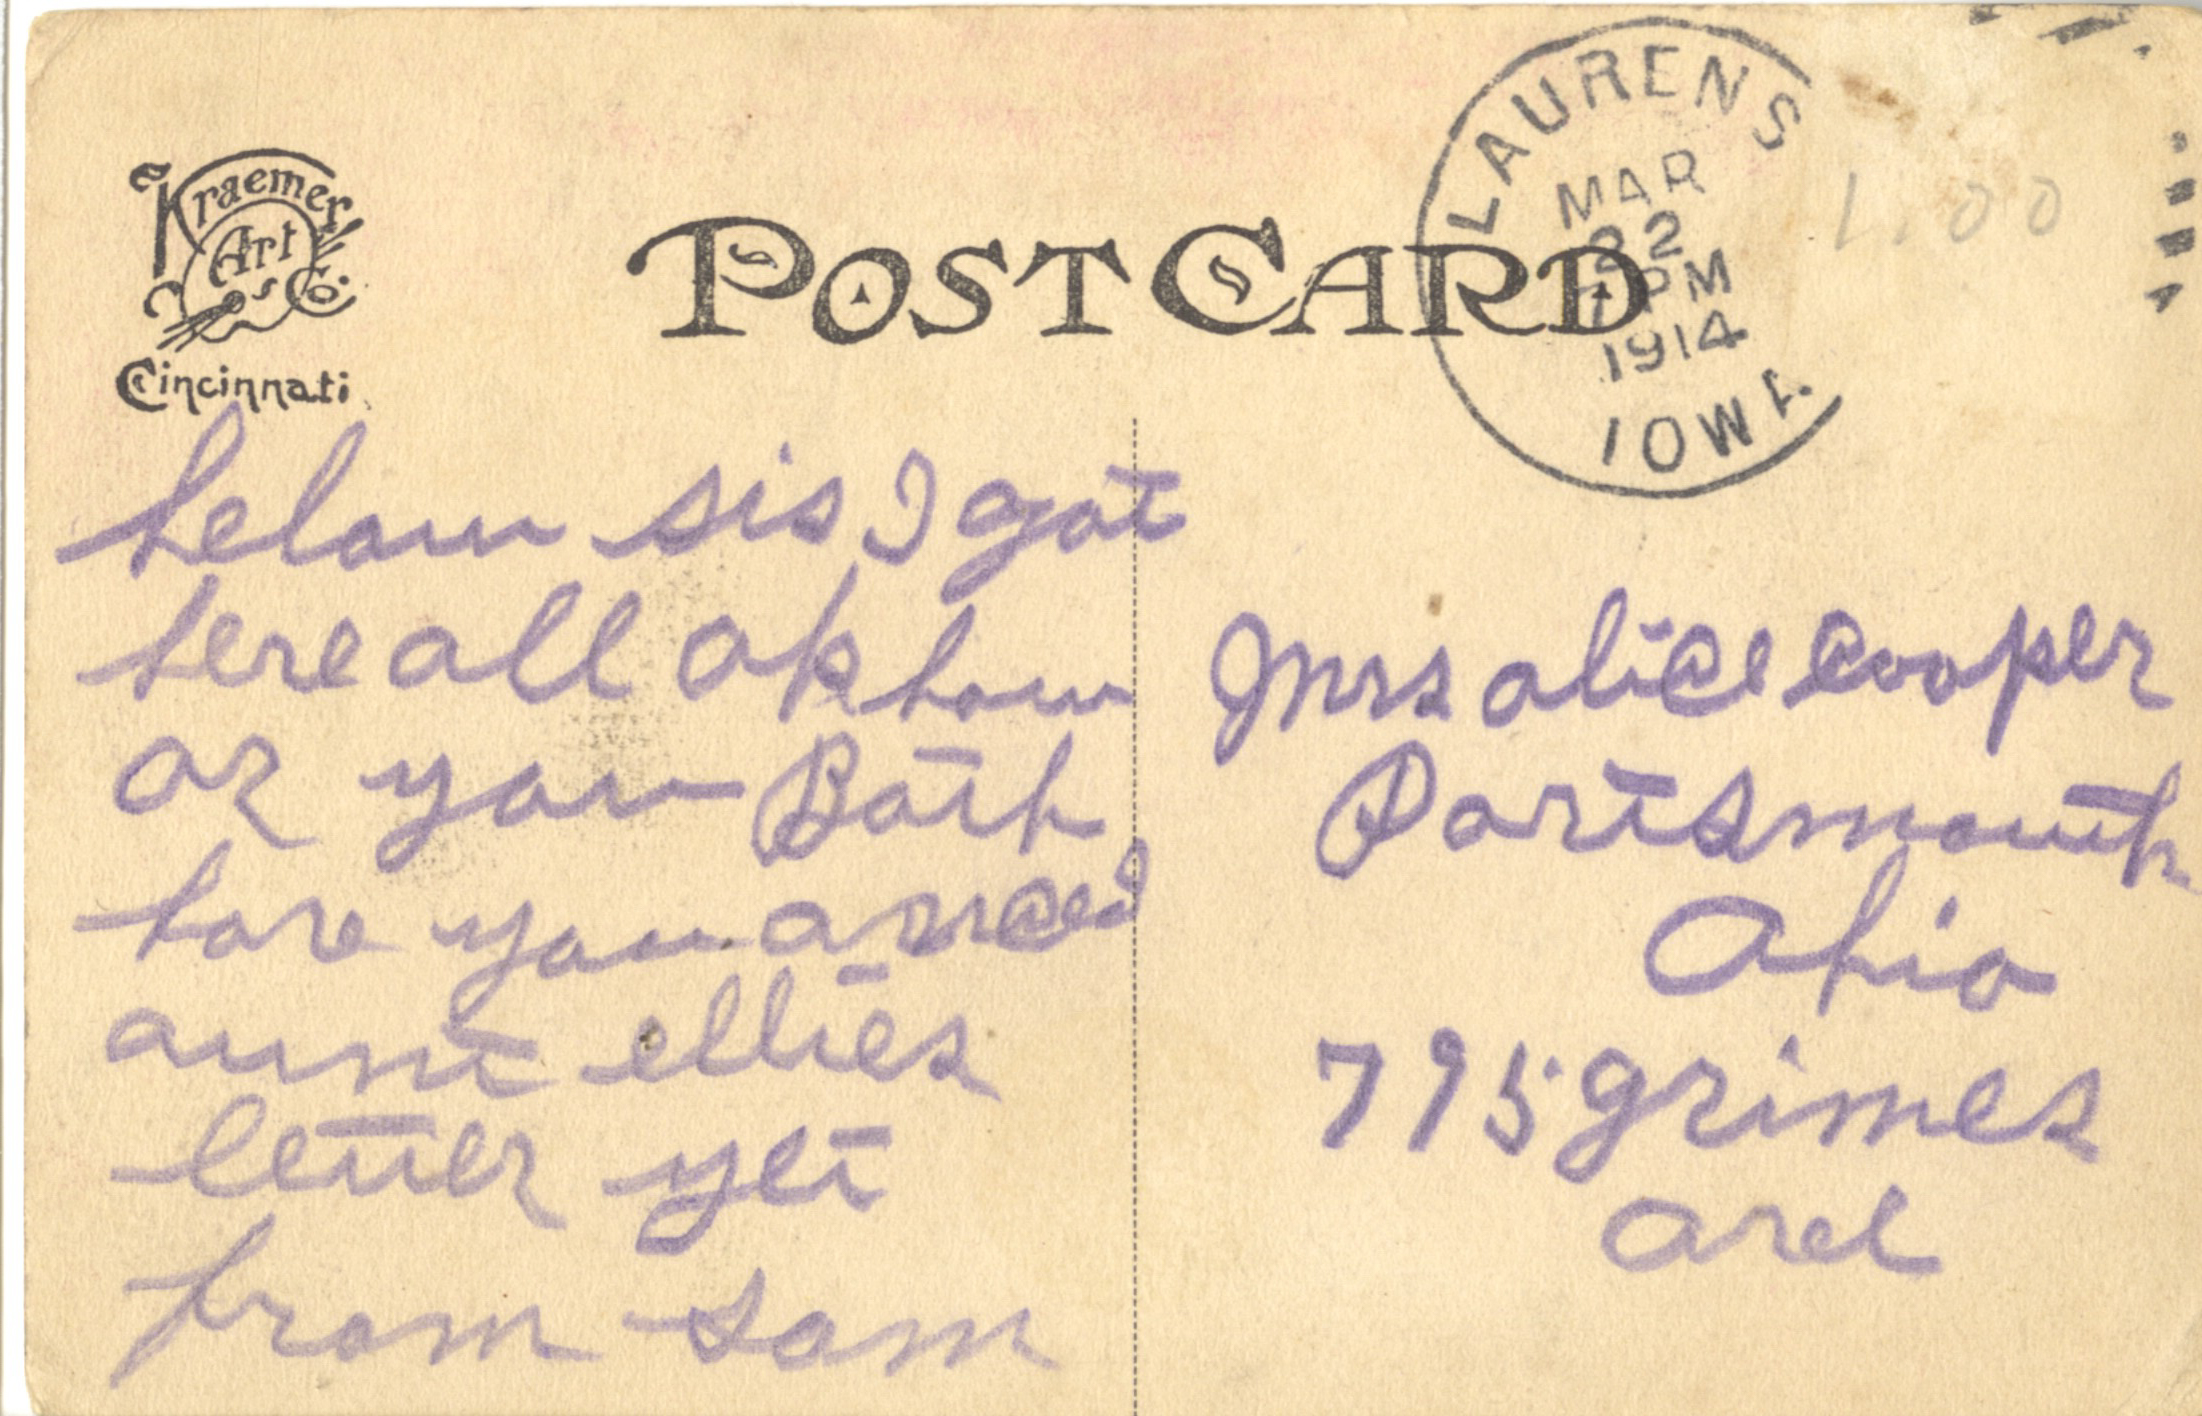 Kraemer
Art
s Co.
Cincinnati
POST CARD
LAURENS
MAR
22
PM
1914
IOWA
1.00
helow sis I got
here all ok how
ar you Both
have you
aunt ellies
letter yet
from sam
Mrs alice cooper
Portsmouth
Ohio
795 grimes